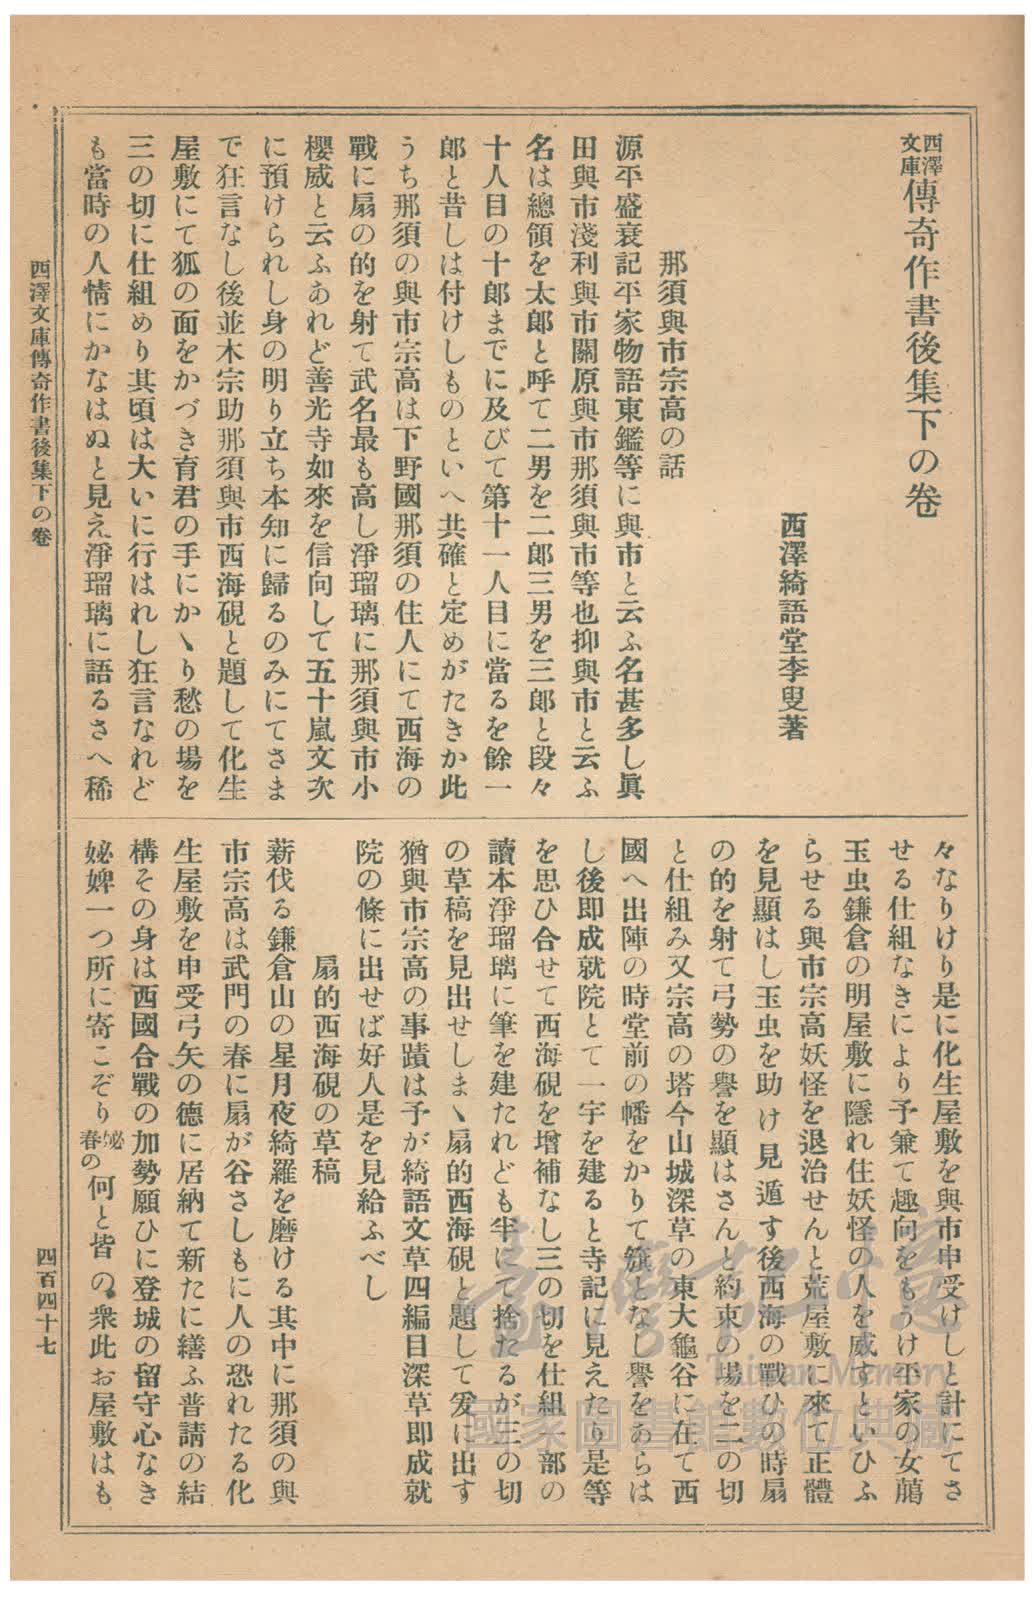 西澤文庫傳奇作書後集下の卷
西澤綺語堂李叟著
那須與市宗高の話
源平盛衰記平家物語東鑑等に與市と云ふ名甚多し眞
田與市淺利與市關原與市那須與市等也抑與市と云ふ
名は總領を太郎と呼て二男を二郎三男を三郎と段々
十人目の十郎までに及びて第十一人目に當るを餘一
郎と昔しは付けしものといへ共確と定めがたきか此
うち那須の與市宗高は下野國那須の住人にて西海の
戰に扇の的を射て武名最も高し淨瑠璃に那須與市小
櫻威と云ふあれど善光寺如來を信向して五十嵐文次
に預けられし身の明り立ち本知に歸るのみにてさま
で狂言なし後並木宗助那須與市西海硯と題して化生
屋敷にて狐の面をかづき育君の手にかゝり愁の場を
三の切に仕組めり其頃は大いに行はれし狂言なれど
も當時の人情にかなはぬと見え淨瑠璃に語るさへ稀
々なりけり是に化生屋敷を與市申受けしと計にてさ
せる仕組なきにより予兼て趣向をもうけ平家の女﨟
玉虫鎌倉の明屋敷に隱れ住妖怪の人を威すといひふ
らせる與市宗高妖怪を退治せんと荒屋敷に來て正體
を見顯はし玉虫を助け見遁す後西海の戰ひの時扇
の的を射て弓勢の譽を顯はさんと約束の場を二の切
と仕組み又宗高の塔今山城深草の東大龜谷に在て西
國へ出陣の時堂前の幡をかりて籏となし譽をあらは
し後即成就院とて一宇を建ると寺記に見えたり是等
を思ひ合せて西海硯を增補なし三の切を仕組一部の
讀本淨瑠璃に筆を建たれども半にて捨たるが三の切
の草稿を見出せしまゝ扇的西海硯と題して爰に出す
猶與市宗高の事蹟は予が綺語文草四編目深草即成就
院の條に出せば好人是を見給ふべし
扇的西海硯の草稿
薪伐る鎌倉山の星月夜綺羅を磨ける其中に那須の與
市宗高は武門の春に扇が谷さしもに人の恐れたる化
生屋敷を申受弓矢の德に居納て新たに繕ふ普請の結
構その身は西國合戰の加勢願ひに登城の留守心なき
妼婢一つ所に寄こぞり春の何と皆の衆此お屋敷はも
西澤文庫傳奇作書後集下の卷
四百四十七
臺灣記憶
Taiwan Memory
國家圖書館數位典藏